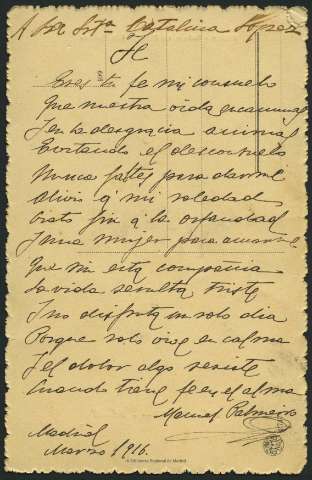 A Srta Catalina López
Fe
Eres tu fe mi consuelo
Que nuestra vida encaminas
Y en la desgracia animas
Evitando el desconsuelo
Nunca faltes para darme
Alivio á mi soledad
á la orfandad
Y una mujer para amarme
Que sin esta compañia
La vida resulta triste
Y no disfruta un solo dia
Porque solo vive en calma
Y el dolor algo resiste
Cuando tiene fe en el alma
Manuel Palmeiro
Madrid
Marzo 1916.
© Biblioteca Regional de Madrid